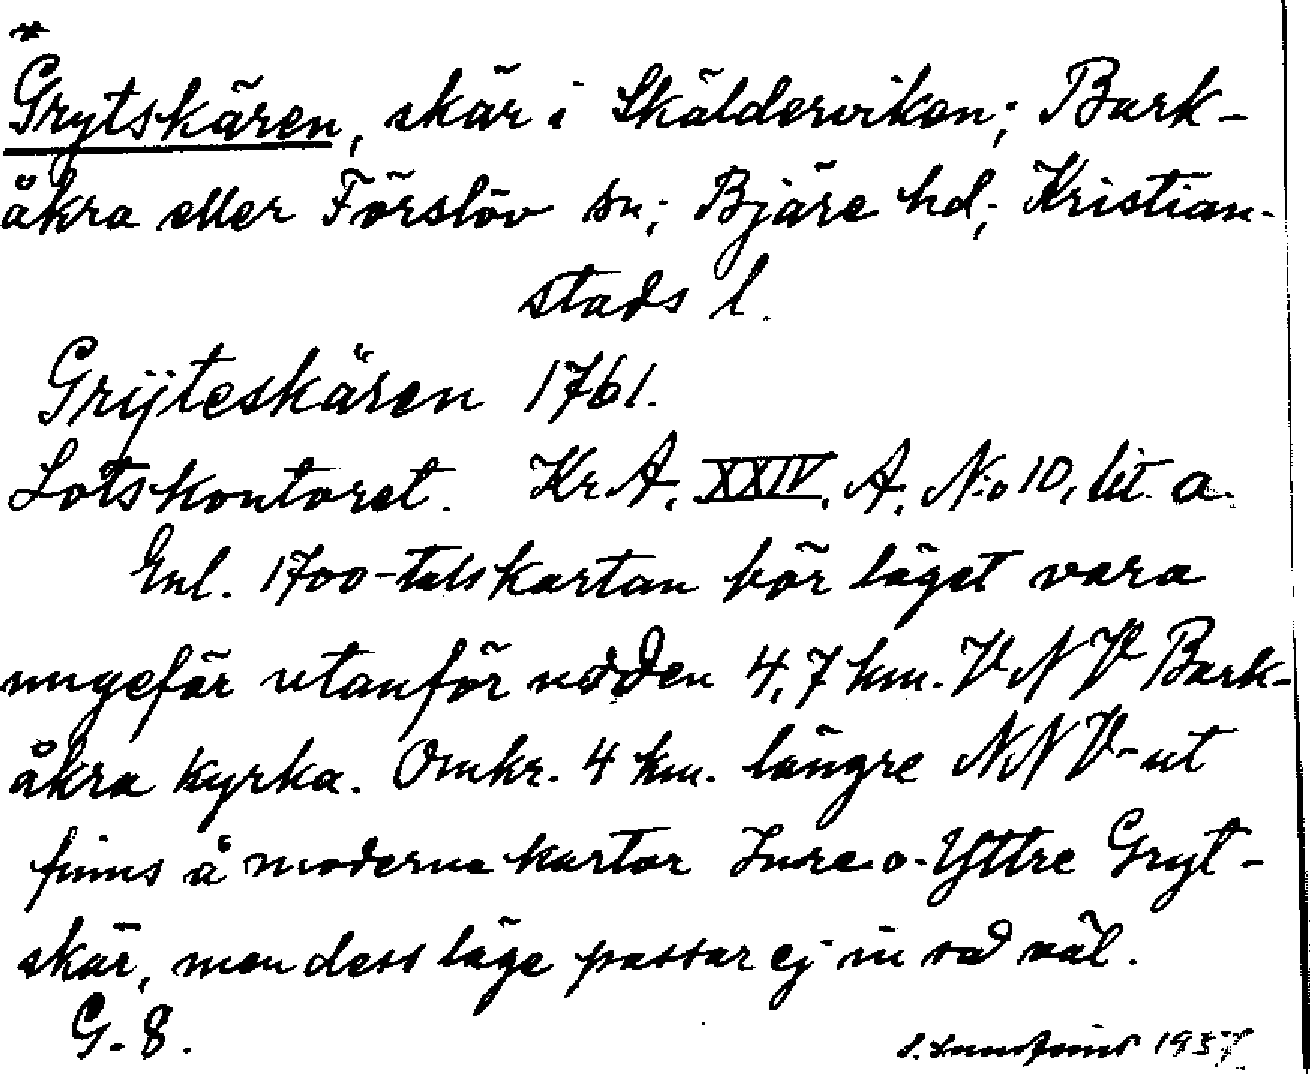 *
Grytskären, skär i Skälderviken; Bark-
åkra eller Förslöv sn; Bjäre hd; Kristian-
stads l.
Grÿteskären 1761.
Lotskontoret. Kr A. XXIV. A. N:o 10, lit a.
Enl. 1700-talskartan bör läget vara
ungefär utanför udden 4,7 km. VNV Bark-
åkra kyrka. Omkr. 4 km. längre NNV-ut
finns å moderna kartor Inre o. Yttre Gryt-
skär, men dess läge passar ej in så väl.
G. 8.
1937